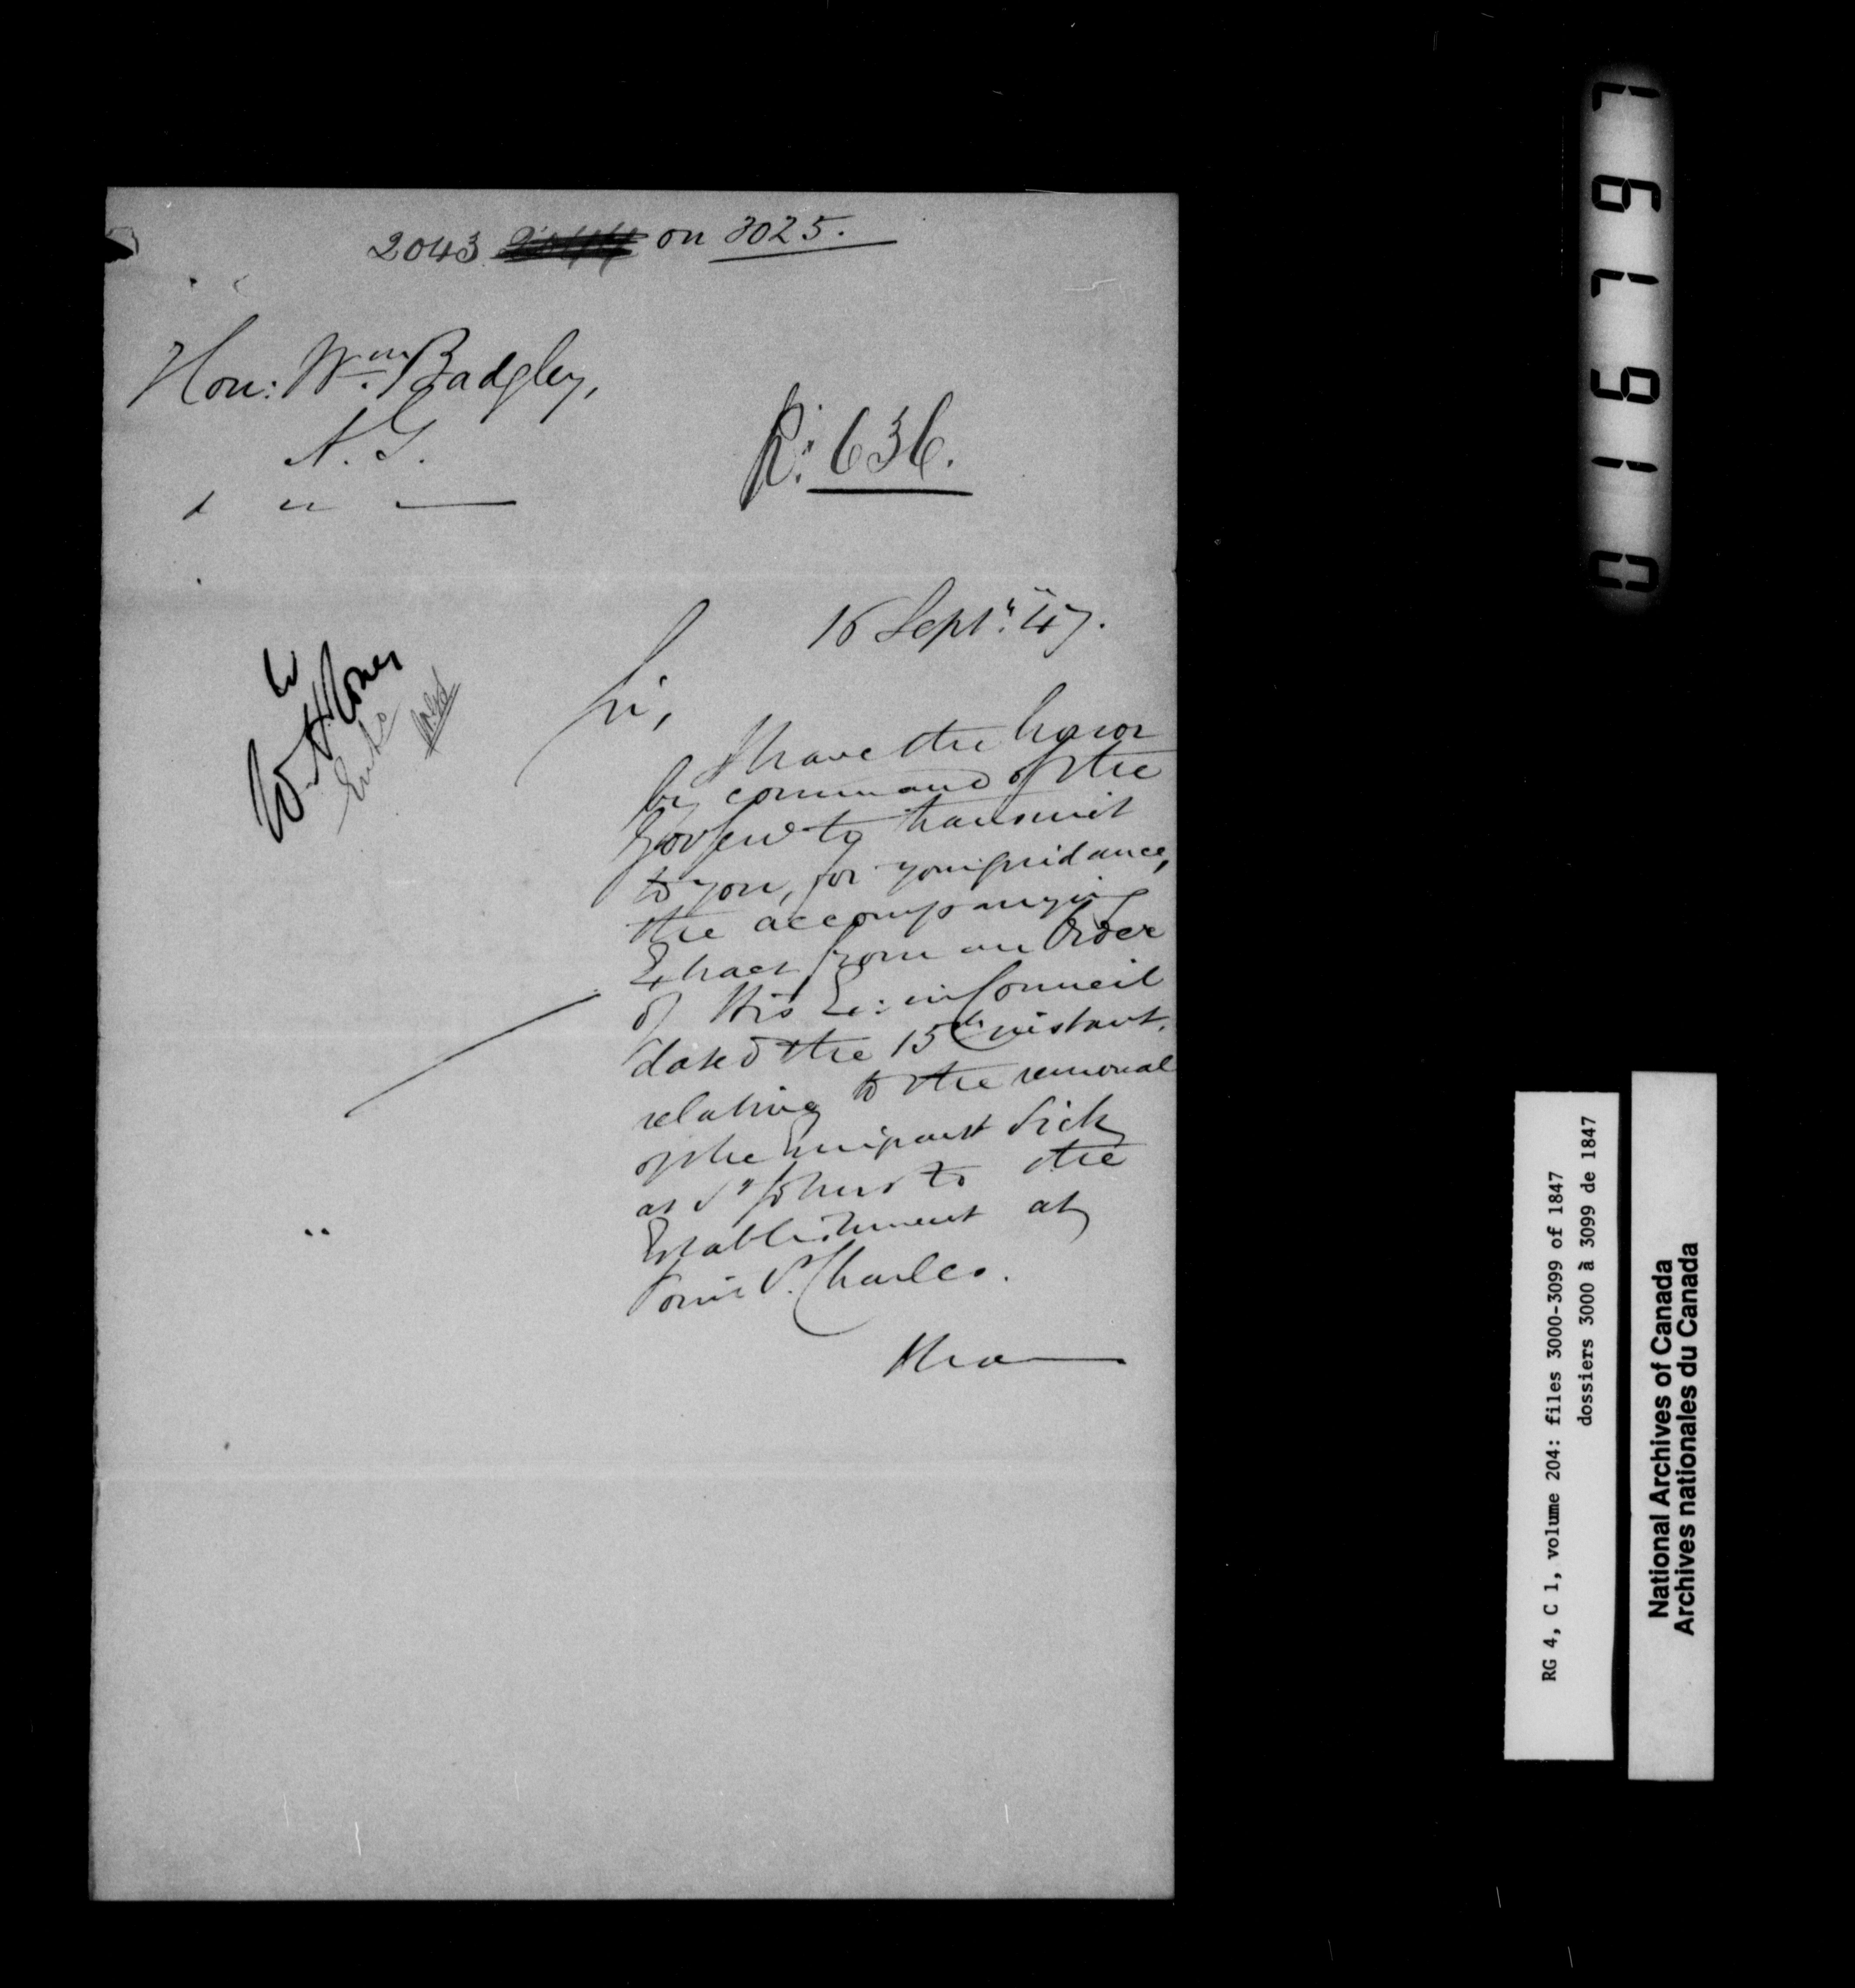 2043 on 3025.
Hon: Wm. Badgley,
A.G.
R: 636.
16 Septr. '47.
Sir,
I have the honor
by command of the
Gov Genl to transmit
to you, for your guidance,
the accompanying
Extract from an Order
of His Ex: in Council
dated the 15th instant,
relating to the removal
of the Emigrant Sick
at St Johns to the
Establishment at
Point St. Charles.
I hav
W. H. Jones
Entd
0167 1 6 7 9 7
RG 4, C 1, volume 204: files 3000-3099 of 1847
dossiers 3000 à 3099 de 1847
National Archives of Canada
Archives nationales du Canada